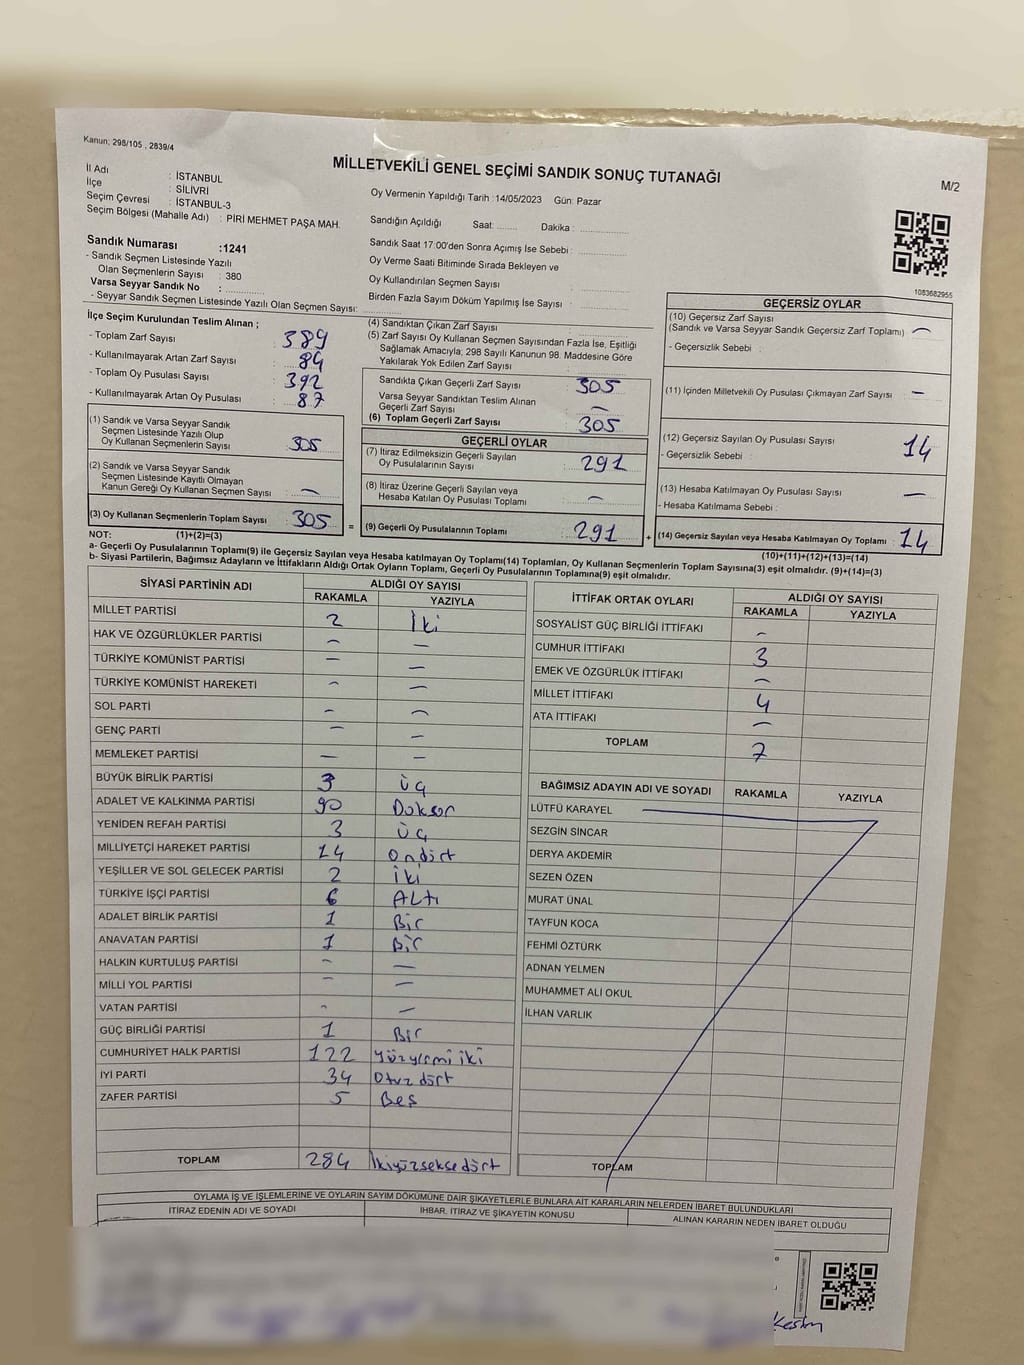 Kanun; 298/105 , 2839/4
MİLLETVEKİLİ GENEL SEÇİMİ SANDIK SONUÇ TUTANAĞI
M/2
İl Adı : İSTANBUL
İlçe : SİLİVRİ
Seçim Çevresi : İSTANBUL-3
Seçim Bölgesi (Mahalle Adı) : PİRİ MEHMET PAŞA MAH.
Oy Vermenin Yapıldığı Tarih :14/05/2023 Gün: Pazar
Sandığın Açıldığı Saat: ........ Dakika : ..............
Sandık Saat 17:00'den Sonra Açımış İse Sebebi : ..............
Oy Verme Saati Bitiminde Sırada Bekleyen ve
Oy Kullandırılan Seçmen Sayısı : ..............
Birden Fazla Sayım Döküm Yapılmış İse Sayısı : ..............
1083682955
Sandık Numarası :1241
- Sandık Seçmen Listesinde Yazılı
Olan Seçmenlerin Sayısı : 380
Varsa Seyyar Sandık No : ..............
- Seyyar Sandık Seçmen Listesinde Yazılı Olan Seçmen Sayısı: ..............
İlçe Seçim Kurulundan Teslim Alınan ;
- Toplam Zarf Sayısı : 389
- Kullanılmayarak Artan Zarf Sayısı : 84
- Toplam Oy Pusulası Sayısı : 392
- Kullanılmayarak Artan Oy Pusulası : 87
(1) Sandık ve Varsa Seyyar Sandık
Seçmen Listesinde Yazılı Olup
Oy Kullanan Seçmenlerin Sayısı : 305
(2) Sandık ve Varsa Seyyar Sandık
Seçmen Listesinde Kayıtlı Olmayan
Kanun Gereği Oy Kullanan Seçmen Sayısı : —
(3) Oy Kullanan Seçmenlerin Toplam Sayısı : 305 =
(1)+(2)=(3)
(4) Sandıktan Çıkan Zarf Sayısı : ..............
(5) Zarf Sayısı Oy Kullanan Seçmen Sayısından Fazla İse, Eşitliği
Sağlamak Amacıyla; 298 Sayılı Kanunun 98. Maddesine Göre
Yakılarak Yok Edilen Zarf Sayısı : ..............
Sandıkta Çıkan Geçerli Zarf Sayısı : 305
Varsa Seyyar Sandıktan Teslim Alınan
Geçerli Zarf Sayısı : —
(6) Toplam Geçerli Zarf Sayısı : 305
GEÇERLİ OYLAR
(7) İtiraz Edilmeksizin Geçerli Sayılan
Oy Pusulalarının Sayısı : 291
(8) İtiraz Üzerine Geçerli Sayılan veya
Hesaba Katılan Oy Pusulası Toplamı : —
(9) Geçerli Oy Pusulalarının Toplamı : 291 +
GEÇERSİZ OYLAR
(10) Geçersiz Zarf Sayısı
(Sandık ve Varsa Seyyar Sandık Geçersiz Zarf Toplamı) : —
- Geçersizlik Sebebi :
(11) İçinden Milletvekili Oy Pusulası Çıkmayan Zarf Sayısı : —
(12) Geçersiz Sayılan Oy Pusulası Sayısı : 14
- Geçersizlik Sebebi :
(13) Hesaba Katılmayan Oy Pusulası Sayısı : —
- Hesaba Katılmama Sebebi :
(14) Geçersiz Sayılan veya Hesaba Katılmayan Oy Toplamı : 14
(10)+(11)+(12)+(13)=(14)
NOT:
a- Geçerli Oy Pusulaları Toplamı(9) ile Geçersiz Sayılan veya Hesaba katılmayan Oy Toplamı(14) Toplamları, Oy Kullanan Seçmenlerin Toplam Sayısına(3) eşit olmalıdır. (9)+(14)=(3)
b- Siyasi Partilerin, Bağımsız Adayların ve İttifakların Aldığı Ortak Oyların Toplamı, Geçerli Oy Pusulalarının Toplamına(9) eşit olmalıdır.
SİYASİ PARTİNİN ADI ALDIĞI OY SAYISI
RAKAMLA YAZIYLA
MİLLET PARTİSİ 2 İki
HAK VE ÖZGÜRLÜKLER PARTİSİ — —
TÜRKİYE KOMÜNİST PARTİSİ — —
TÜRKİYE KOMÜNİST HAREKETİ — —
SOL PARTİ — —
GENÇ PARTİ — —
MEMLEKET PARTİSİ — —
BÜYÜK BİRLİK PARTİSİ 3 üç
ADALET VE KALKINMA PARTİSİ 90 Doksan
YENİDEN REFAH PARTİSİ 3 üç
MİLLİYETÇİ HAREKET PARTİSİ 14 ondört
YEŞİLLER VE SOL GELECEK PARTİSİ 2 iki
TÜRKİYE İŞÇİ PARTİSİ 6 ALtı
ADALET BİRLİK PARTİSİ 1 Bir
ANAVATAN PARTİSİ 1 Bir
HALKIN KURTULUŞ PARTİSİ — —
MİLLİ YOL PARTİSİ — —
VATAN PARTİSİ — —
GÜÇ BİRLİĞİ PARTİSİ 1 Bir
CUMHURİYET HALK PARTİSİ 122 yüzyirmi iki
İYİ PARTİ 34 Otuz dört
ZAFER PARTİSİ 5 Beş
TOPLAM 284 İkiyüzseksedört
İTTİFAK ORTAK OYLARI ALDIĞI OY SAYISI
RAKAMLA YAZIYLA
SOSYALİST GÜÇ BİRLİĞİ İTTİFAKI —
CUMHUR İTTİFAKI 3
EMEK VE ÖZGÜRLÜK İTTİFAKI —
MİLLET İTTİFAKI 4
ATA İTTİFAKI —
TOPLAM 7
BAĞIMSIZ ADAYIN ADI VE SOYADI RAKAMLA YAZIYLA
LÜTFÜ KARAYEL
SEZGİN SİNCAR
DERYA AKDEMİR
SEZEN ÖZEN
MURAT ÜNAL
TAYFUN KOCA
FEHMİ ÖZTÜRK
ADNAN YELMEN
MUHAMMET ALİ OKUL
İLHAN VARLIK
TOPLAM
OYLAMA İŞ VE İŞLEMLERİNE VE OYLARIN SAYIM DÖKÜMÜNE DAİR ŞİKAYETLERLE BUNLARA AİT KARARLARIN NELERDEN İBARET BULUNDUKLARI
İTİRAZ EDENİN ADI VE SOYADI İHBAR, İTİRAZ VE ŞİKAYETİN KONUSU ALINAN KARARIN NEDEN İBARET OLDUĞU